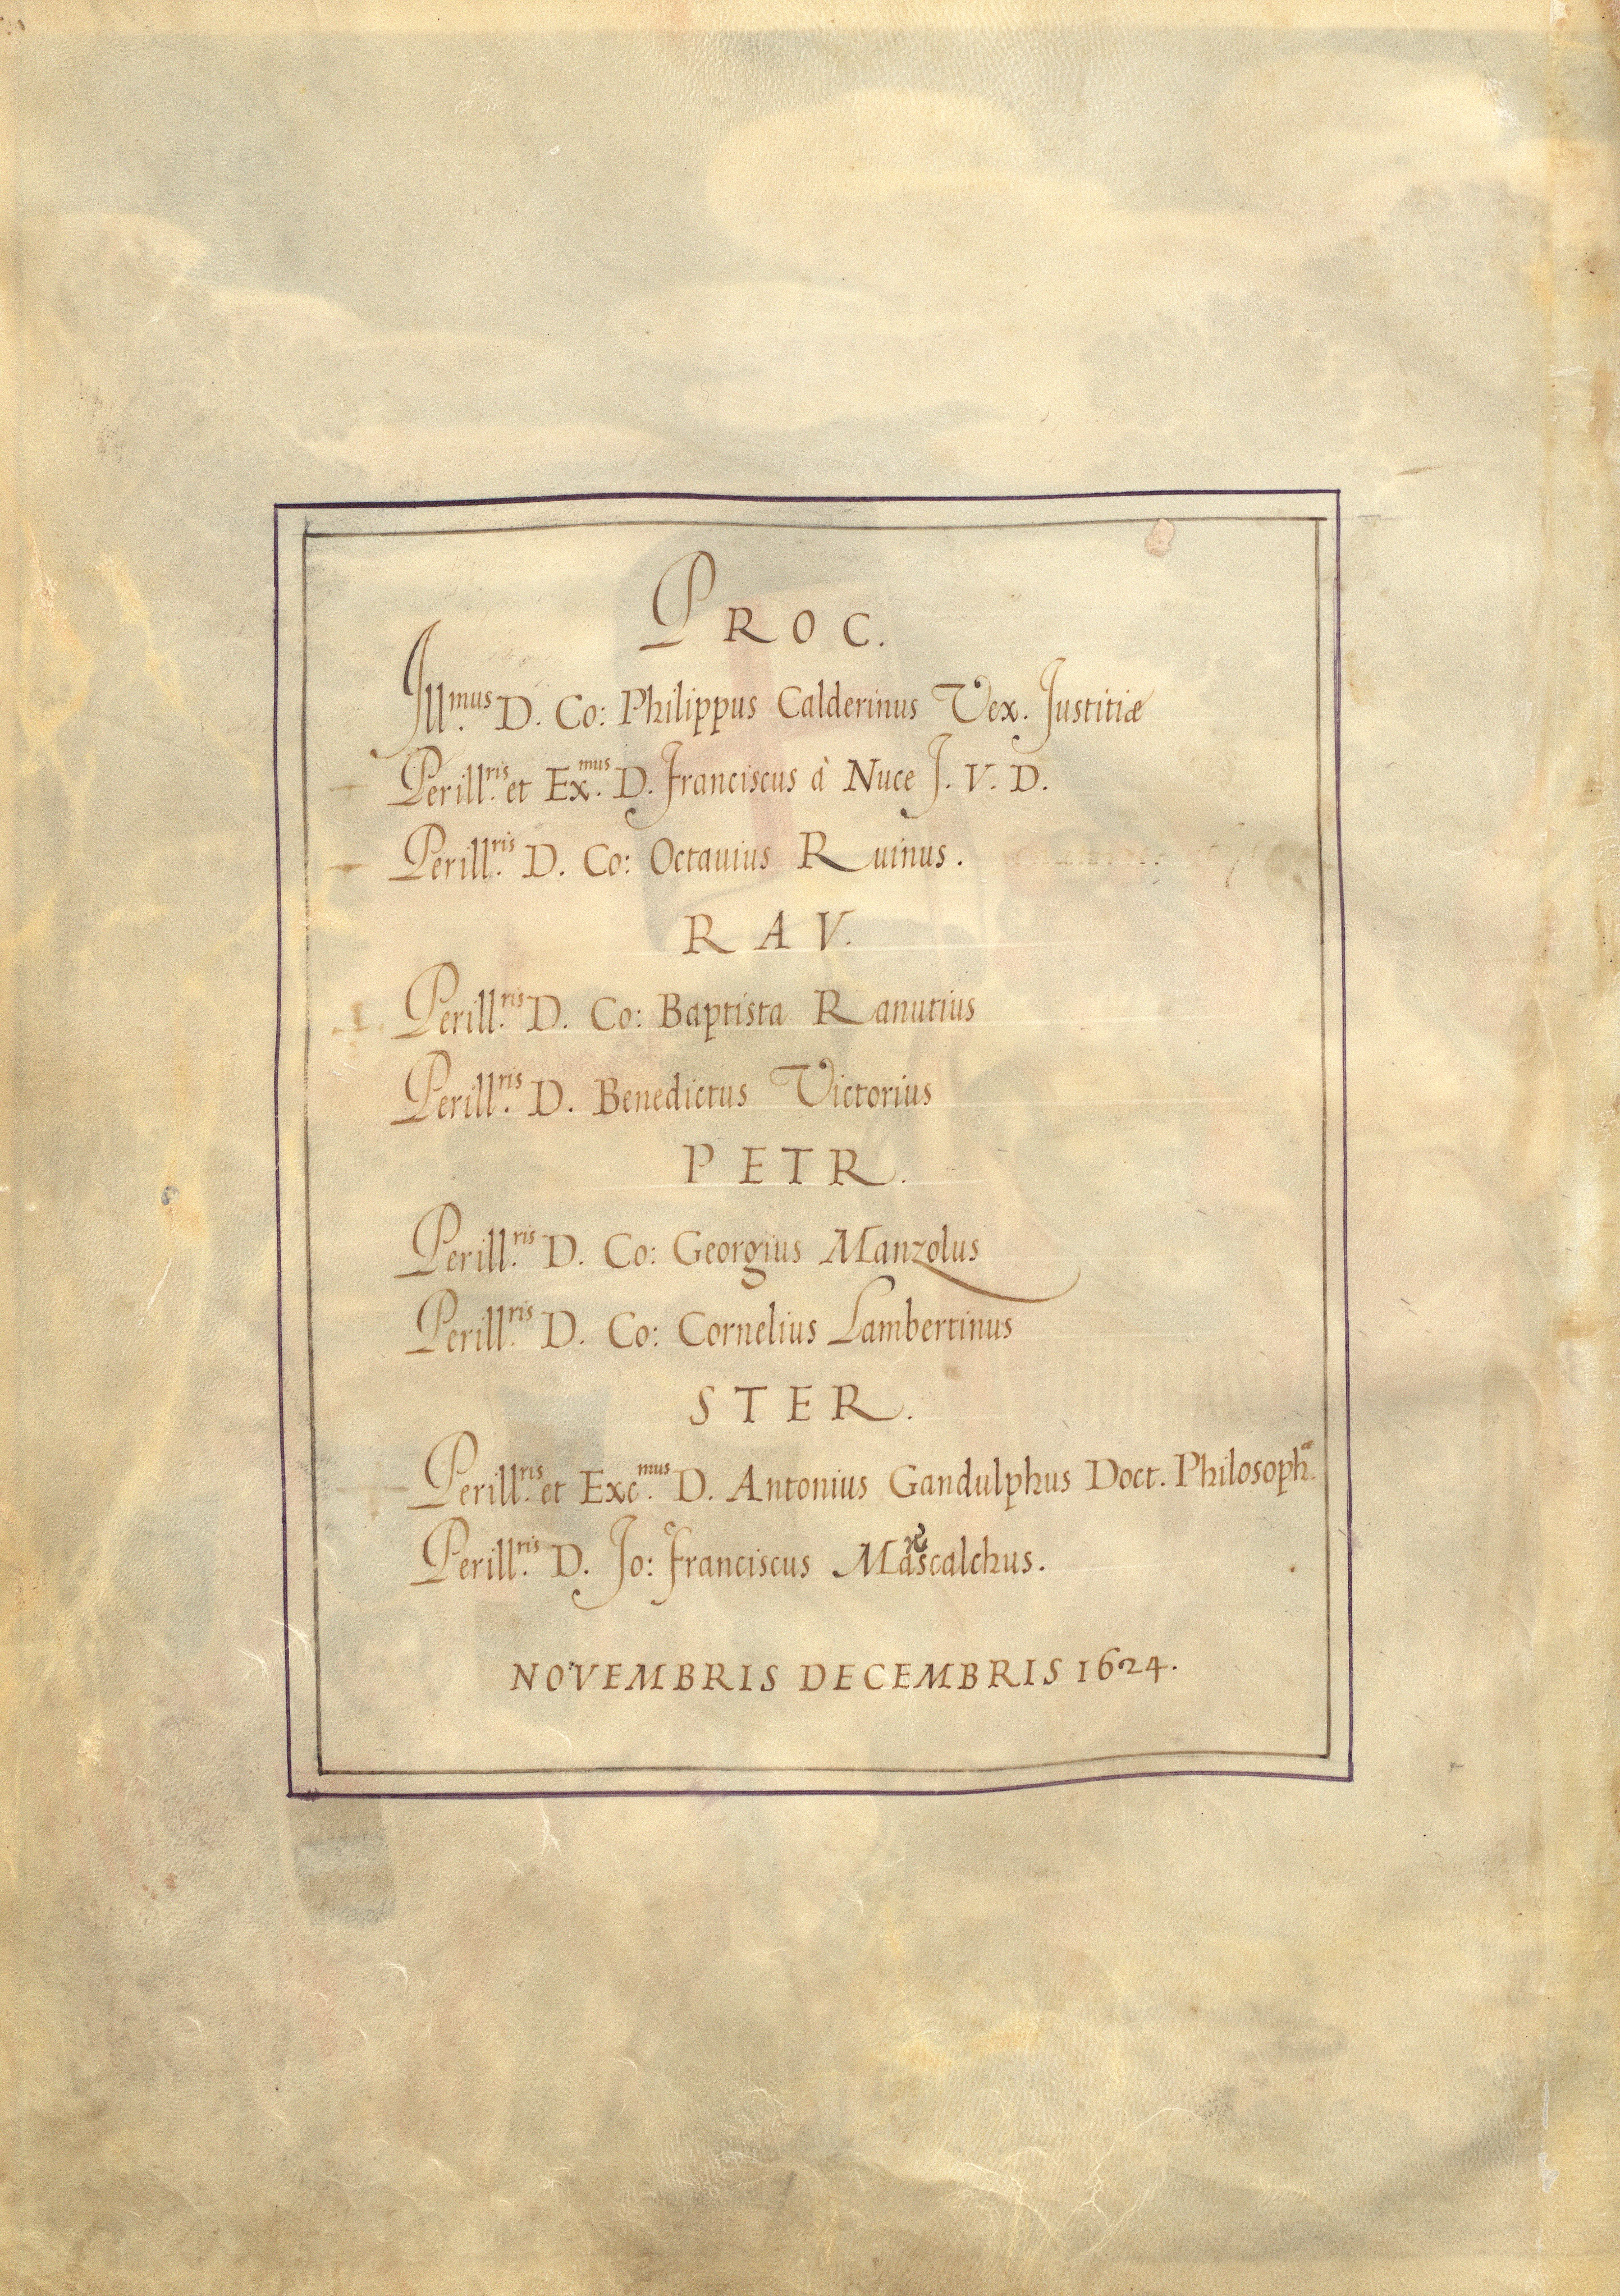 PROC.
Ill.mus D. Co: Philippus Calderinus Vex. Justitiæ
Perill.ris et Ex.mus D. Franciscus à Nuce J. V. D.
Perill.ris D. Co: Octauius Ruinus.
RAV.
Perill.ris D. Co: Baptista Ranutius
Perill.ris D. Benedictus Victorius
PETR.
Perill.ris D. Co: Georgius Manzolus
Perill.ris D. Co: Cornelius Lambertinus
STER.
Perill.ris et Exc.mus D. Antonius Gandulphus Doct. Philosoph.æ
Perill.ris D. Jo: Franciscus Marscalchus.
NOVEMBRIS DECEMBRIS 1624.